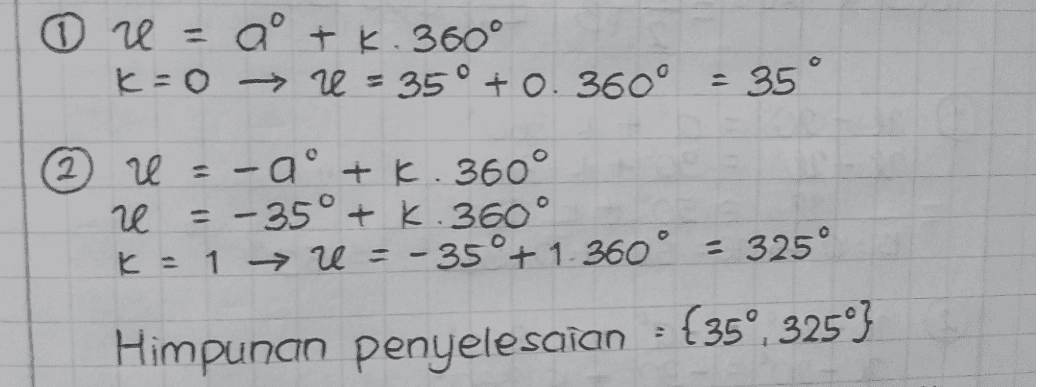 ① x = a° + k. 360°
k = 0 → x = 35° + 0. 360° = 35°
② x = -a° + k. 360°
x = -35° + k. 360°
k = 1 → x = -35° + 1. 360° = 325°
Himpunan penyelesaian = {35°, 325°}